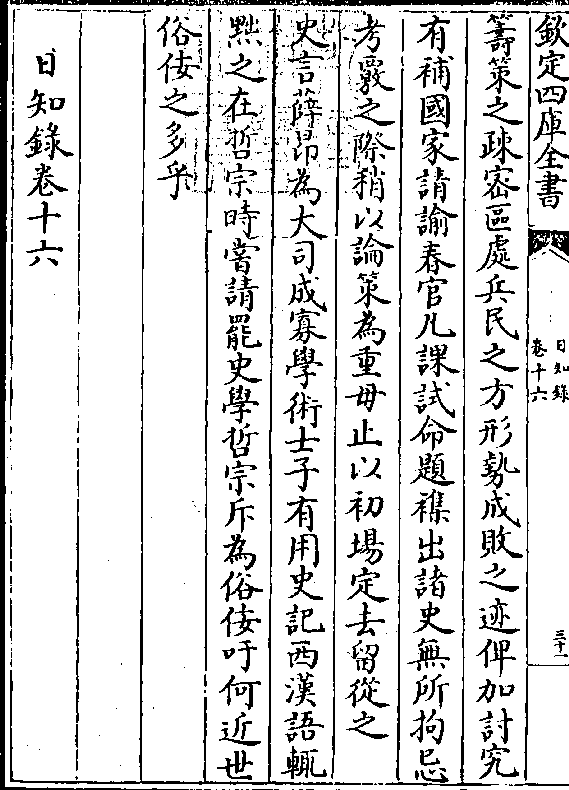 欽定四庫全書
日知錄
卷十六
三十一
籌策之疎宻區處兵民之方形勢成敗之迹俾加討究
有補國家請諭春官凡課試命題襍出諸史無所拘忌
考覈之際稍以論策為重毋止以初場定去留從之
史言薛昂為大司成寡學術士子有用史記西漢語輒
黜之在哲宗時嘗請罷史學哲宗斥為俗佞吁何近世
俗佞之多乎
日知錄卷十六